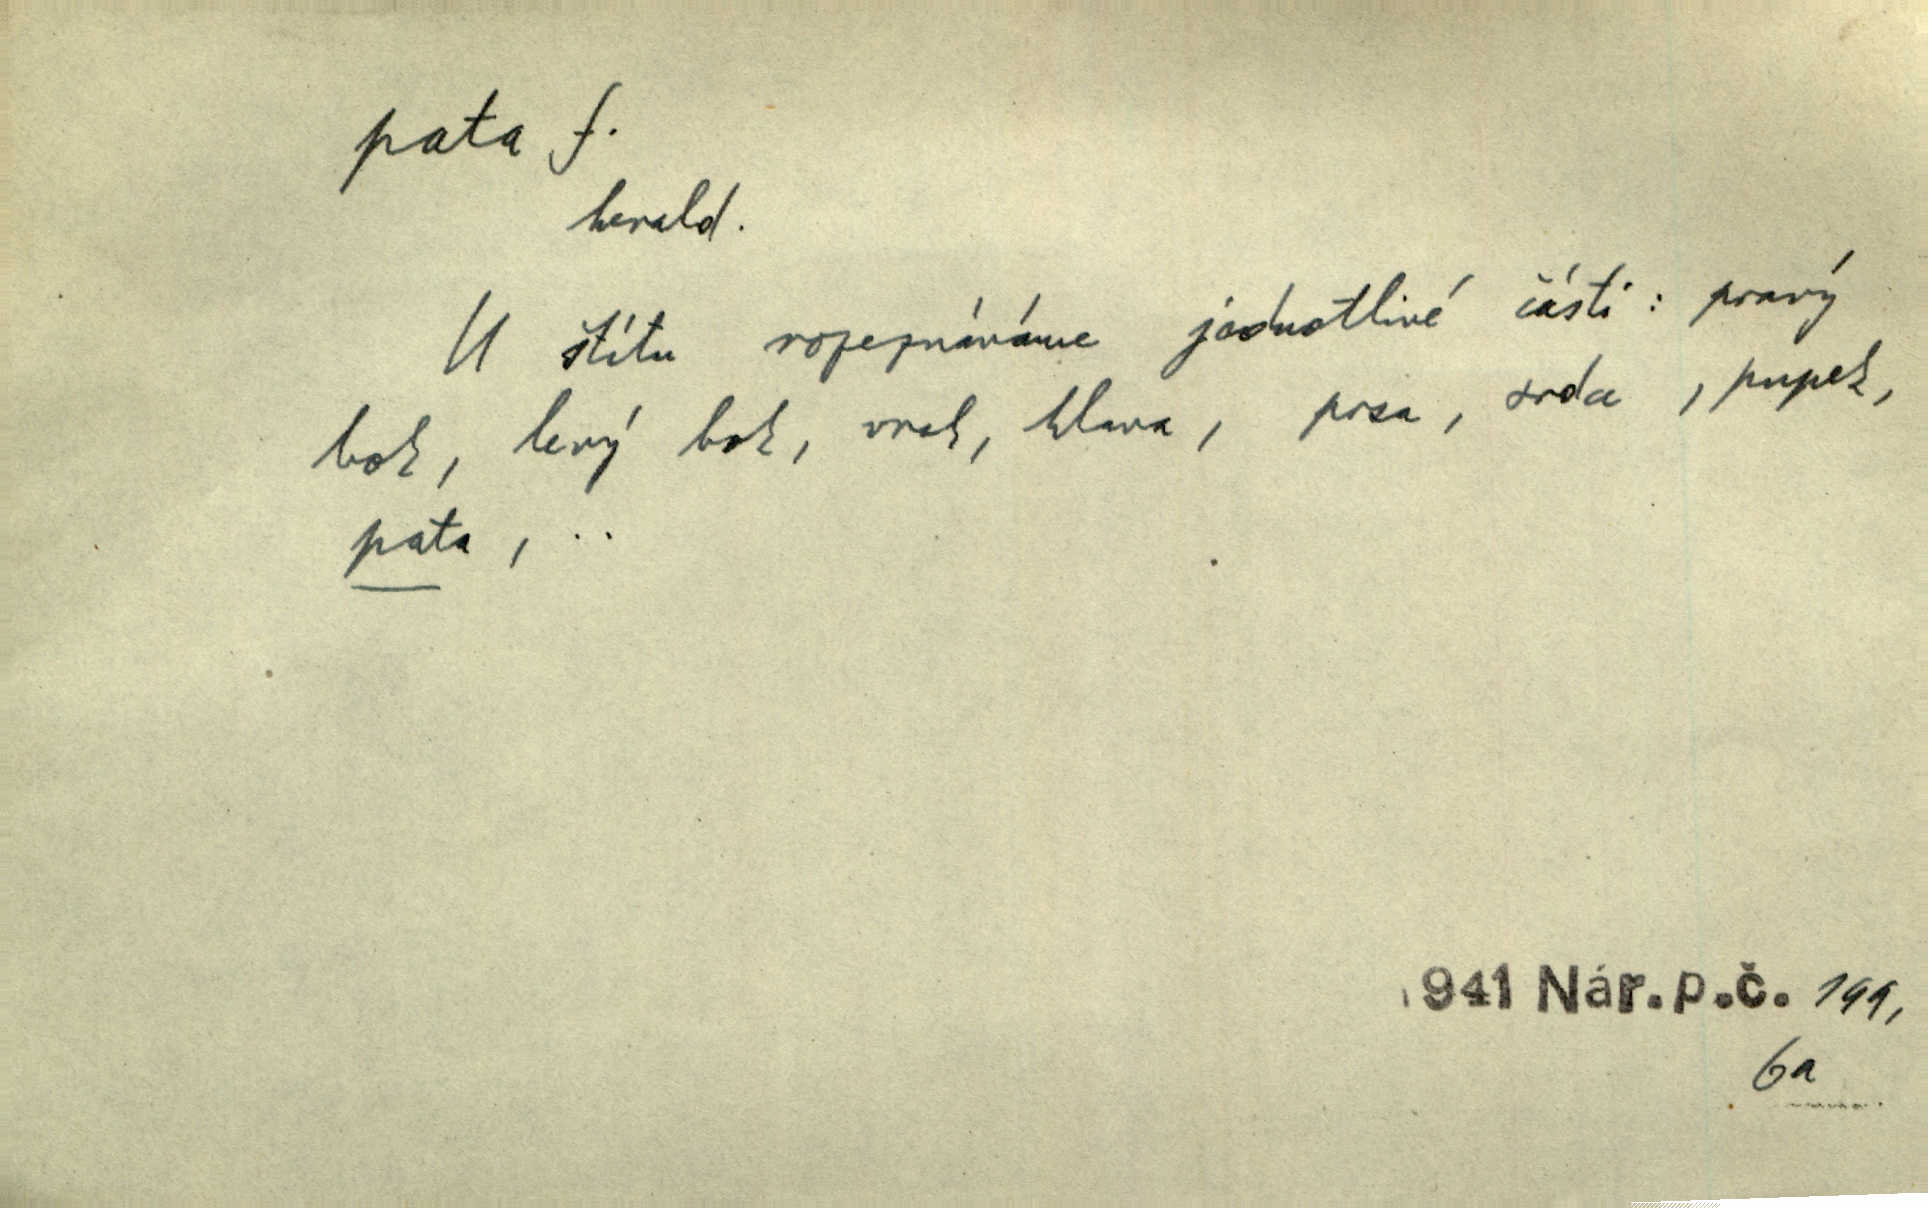 pata f.
herald.
U štítu rozeznáváme jednotlivé části: pravý
bok, levý bok, vrch, hlava, prsa, srdce, pupek,
pata, ..
1941 Nár.p.č. 199,
6a